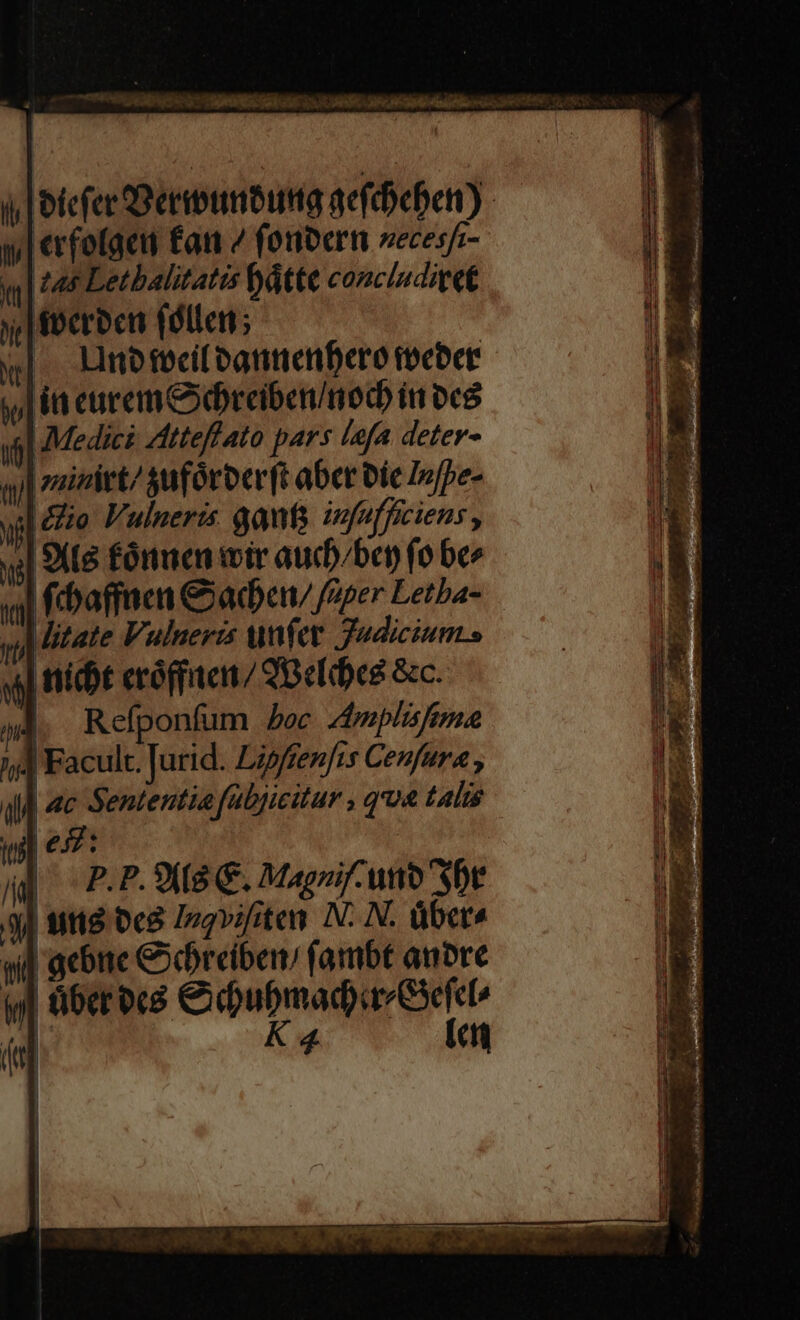 dieſer Verwundung geſchehen)
erfolgen kan / ſondern necesſi-
tas Lethalitatis haͤtte concludiret
werden ſoͤllen;
Und weil dannenhero weder
in eurem Schreiben/noch in des
Medici Atteſtato pars læſa deter-
minirt/ zufoͤrderſt aber die Inſpe-
ctio Vulneris gantz inſufficiens,
Als koͤnnen wir auch/bey ſo be-
ſchaffnen Sachen/ ſuper Letha-
litate Vulneris unſer Judicium
nicht eroͤffnen/ Welches &c.
Reſponſum hoc Amplisſimæ
Facult. Jurid. Lipſienſis Cenſuræ,
ac Sententiæ ſubjicitur, qvæ talis
eſt:
P.P. Als E. Magnif. und Ihr
uns des Inqviſiten N. N. uͤber-
gebne Schreiben/ ſambt andre
uͤber des Schuhmacher-Geſel-
K 4 len